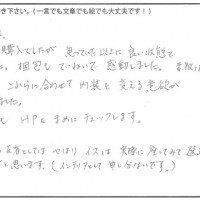 き下さい。(一言でも文章でも絵でも大丈夫です！)
購入でしたが 思っていた以上に良い状態で
た。梱包もていねいで感動しました。
これらに合わせて内装を変える意欲が
ました。
も HPを まめにチェックします。
としては やはり イスは 実際に 座ってみて
と思います。(インテリアとして 申し分ないです。)